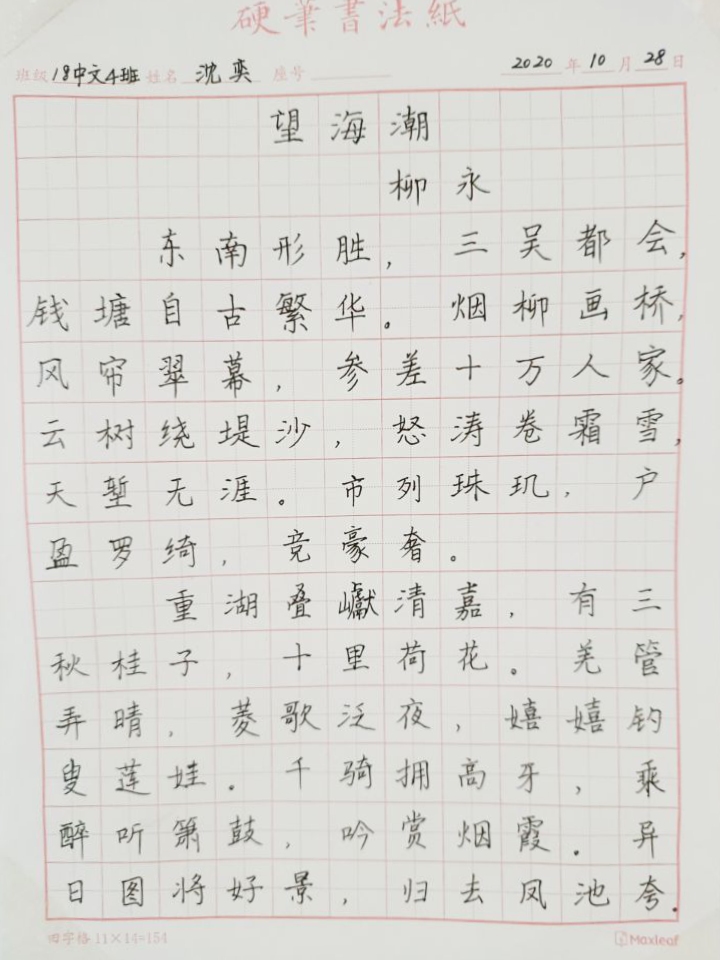 硬筆書法紙
班级 18中文4班 姓名 沈奕 座号 2020年10月28日
望海潮
柳永
东南形胜，三吴都会，
钱塘自古繁华。烟柳画桥，
风帘翠幕，参差十万人家。
云树绕堤沙，怒涛卷霜雪，
天堑无涯。市列珠玑，户
盈罗绮，竞豪奢。
重湖叠巘清嘉，有三
秋桂子，十里荷花。羌管
弄晴，菱歌泛夜，嬉嬉钓
叟莲娃。千骑拥高牙，乘
醉听箫鼓，吟赏烟霞。异
日图将好景，归去凤池夸。
田字格 11×14=154 Maxleaf